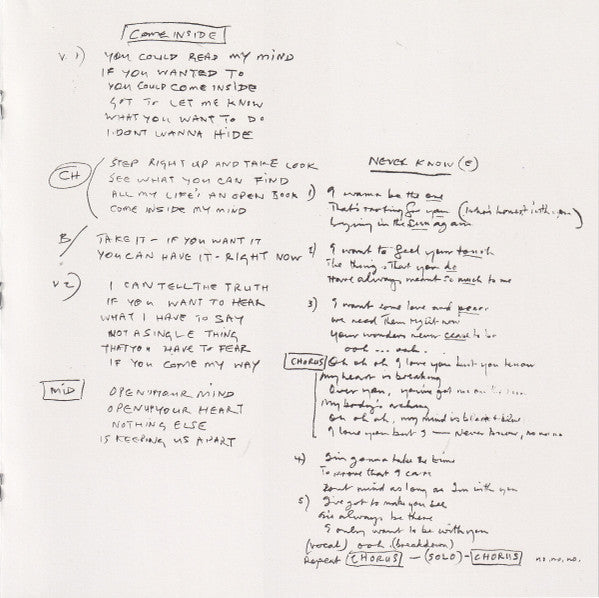 COME INSIDE
V. 1) YOU COULD READ MY MIND
IF YOU WANTED TO
YOU COULD COME INSIDE
GOT TO LET ME KNOW
WHAT YOU WANT TO DO
I DONT WANNA HIDE
CH STEP RIGHT UP AND TAKE LOOK
SEE WHAT YOU CAN FIND
ALL MY LIFE'S AN OPEN BOOK
COME INSIDE MY MIND
B/ TAKE IT - IF YOU WANT IT
YOU CAN HAVE IT - RIGHT NOW
V 2) I CAN TELL THE TRUTH
IF YOU WANT TO HEAR
WHAT I HAVE TO SAY
NOT A SINGLE THING
THAT YOU HAVE TO FEAR
IF YOU COME MY WAY
MID OPEN UP YOUR MIND
OPEN UP YOUR HEART
NOTHING ELSE
IS KEEPING US APART
NEVER KNOW (E)
1) I wanna be the one
That's rooting for you (who's honest with you)
Lying in the sun again
2) I want to feel your touch
The things that you do
Have always meant so much to me
3) I want some love and peace
we need them right now
Your wonders never cease to be
ooh ... ooh.
CHORUS Oh oh oh I love you but you know
My heart is breaking
Over you, you've got me on the
My body's aching
Oh oh oh, my mind is black & blue
I love you but I — Never know, no no no
4) I'm gonna take the time
To prove that I care
Dont mind as long as I'm with you
5) I've got to make you see
I'll always be there
I only want to be with you
(vocal) ooh (breakdown)
Repeat CHORUS - (SOLO) - CHORUS no. no. no.